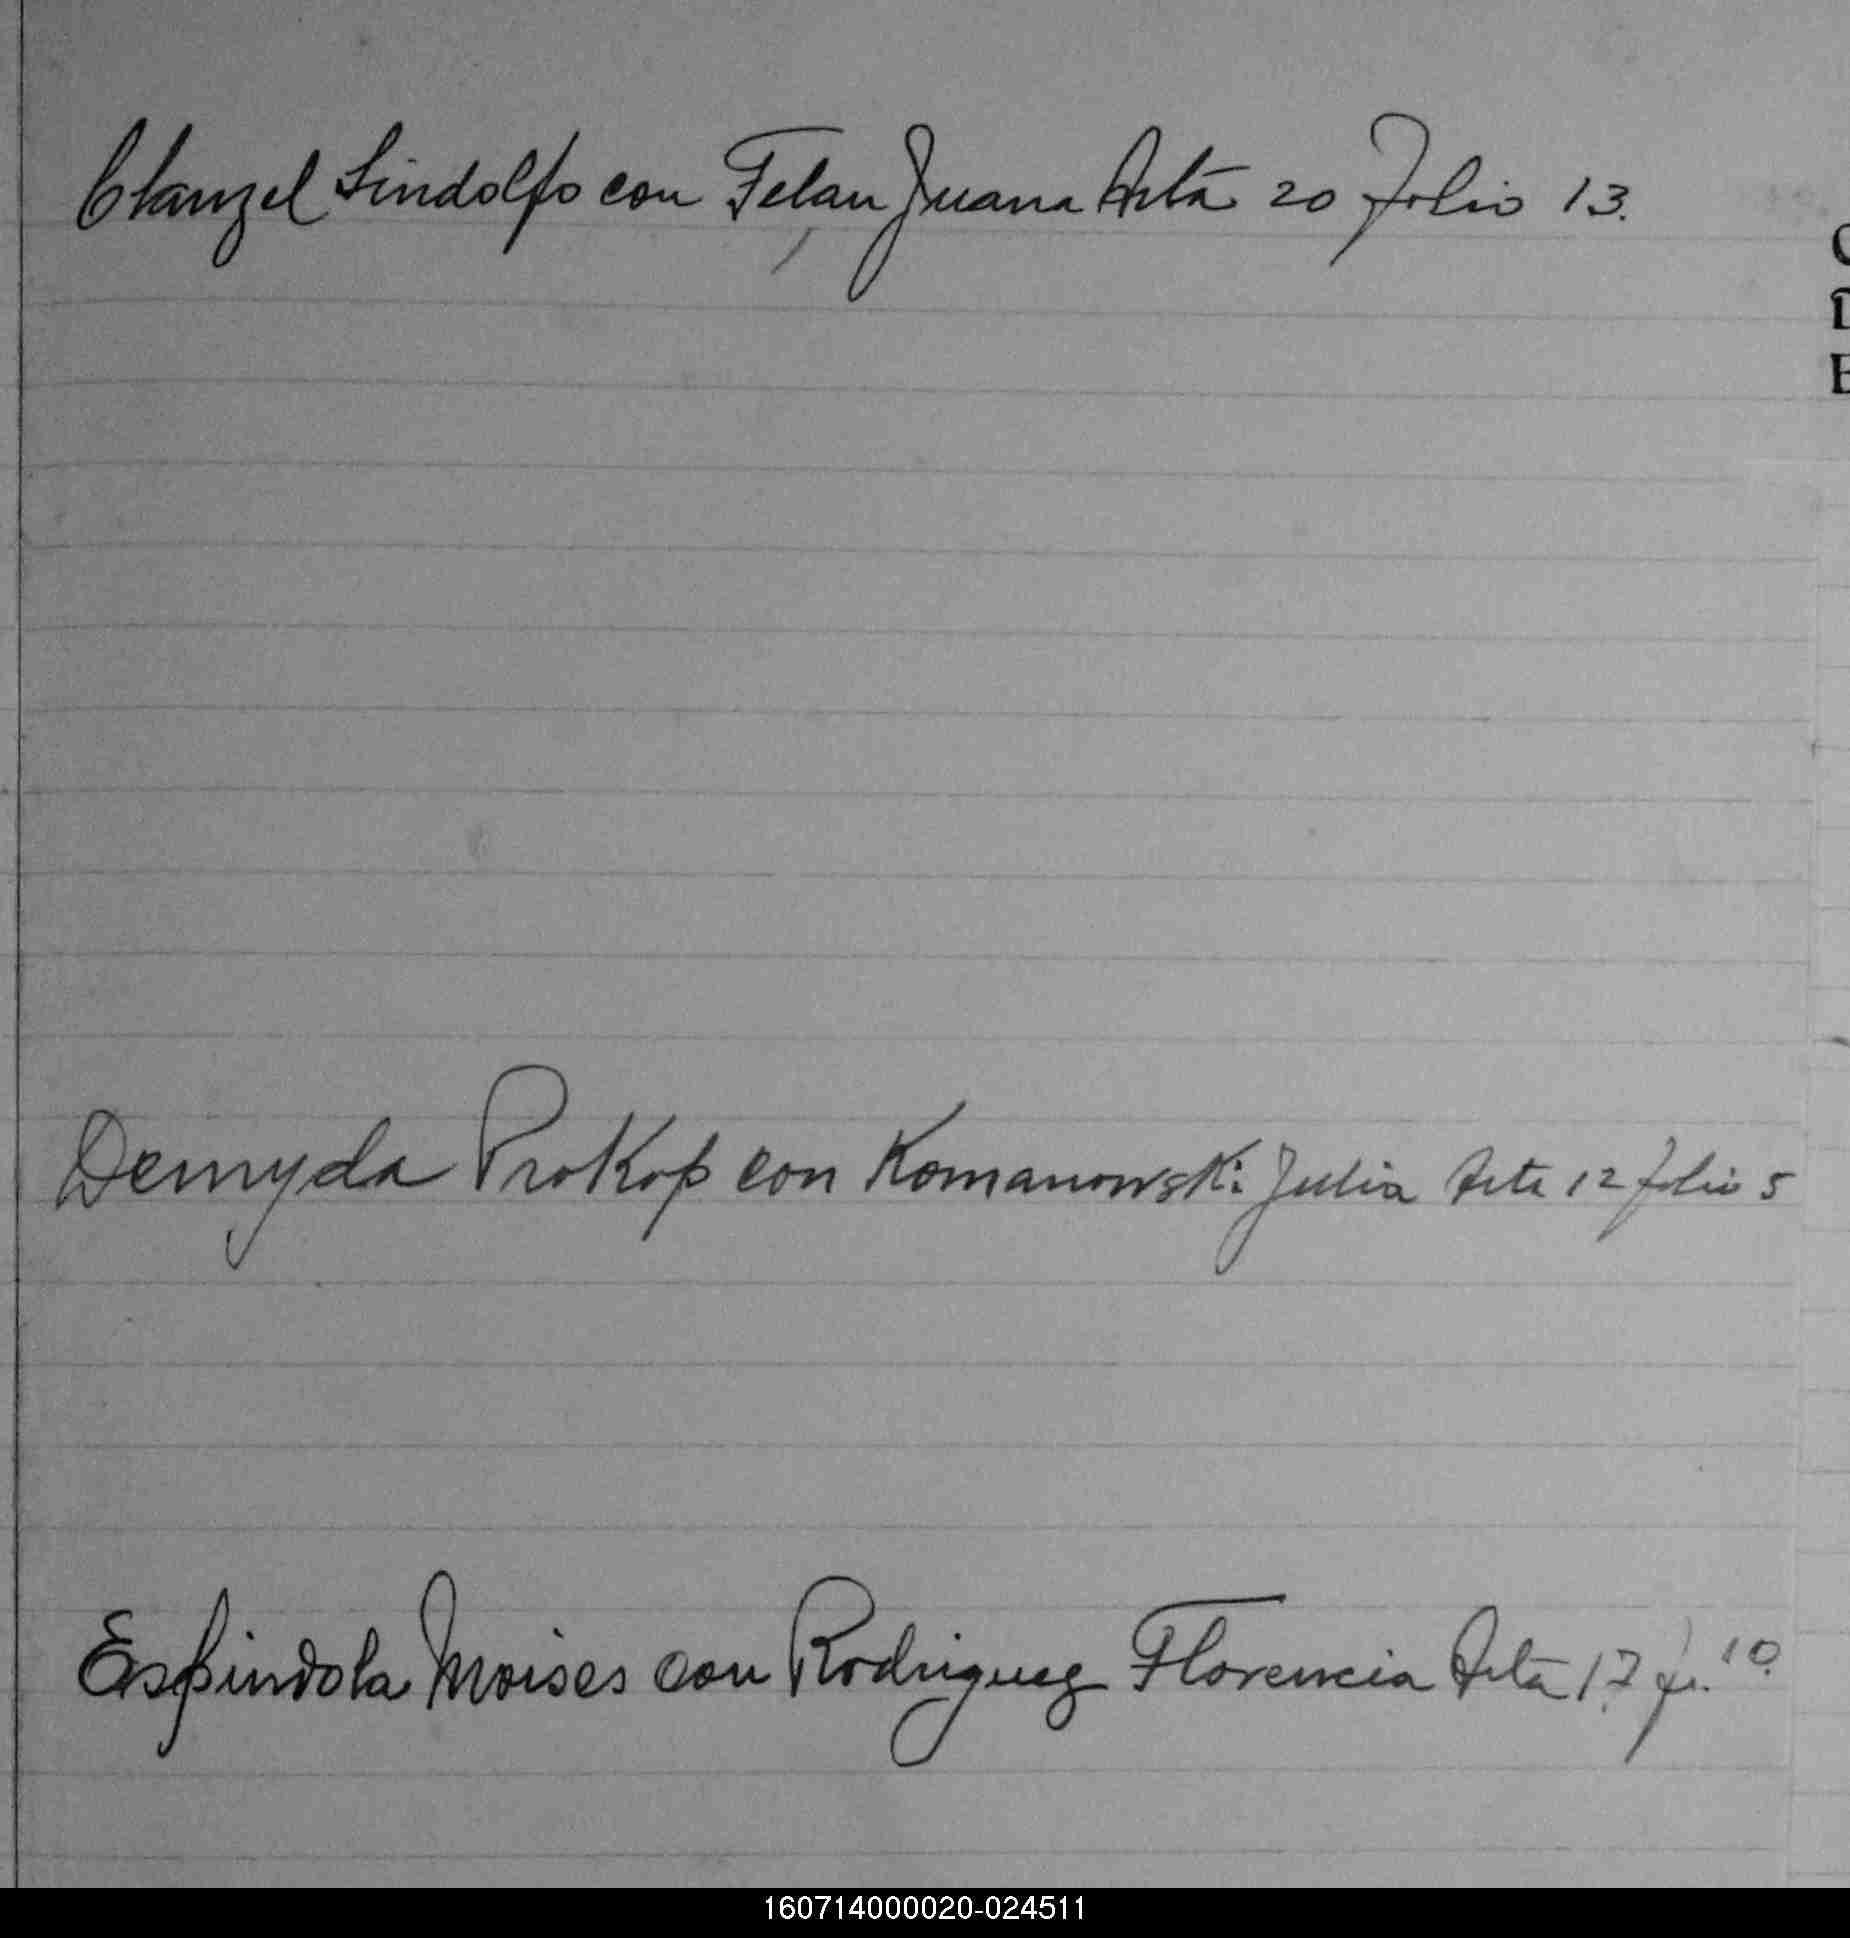 Clanzel Lindolfo con Felau Juana Acta 20 Folio 13.
C
D
E
Demyda Prokop con Komanowski Julia Acta 12 folio 5
Espindola Moises con Rodriguez Florencia Acta 17 fo. 10.
160714000020-024511